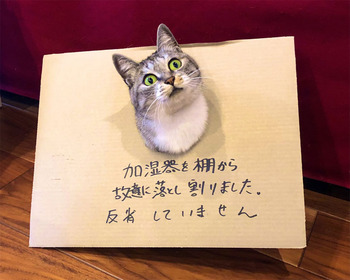 加湿器を棚から
故意に落とし割りました。
反省 していません